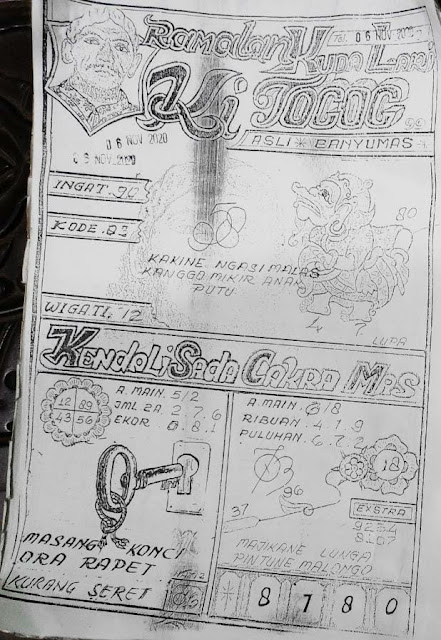 Ramalan Kuda Lari
Tgl. 06 NOV 2020
Ki TOGOG
06 NOV 2020
06 NOV 2020
ASLI * BANYUMAS *
INGAT. 90
KODE. 83
80
6
KAKINE NGASI MALAS
KANGGO MIKIR ANAK
PUTU
WIGATI, 12
4 7
LUPA
KENDALI SADA CAKRA MAS
12 89
43 56
A. MAIN. 5/2
JML 2A 2 7 6
EKOR 0 8 1
A. MAIN. 6/8
RIBUAN. 4 1 9
PULUHAN. 6 7 2
18
96
37
EKSTRA
MASANG KONCI
ORA RAPET
KURANG SERET
MAJIKANE LUNGA
PINTUNE MALONGO
* 8 7 8 0